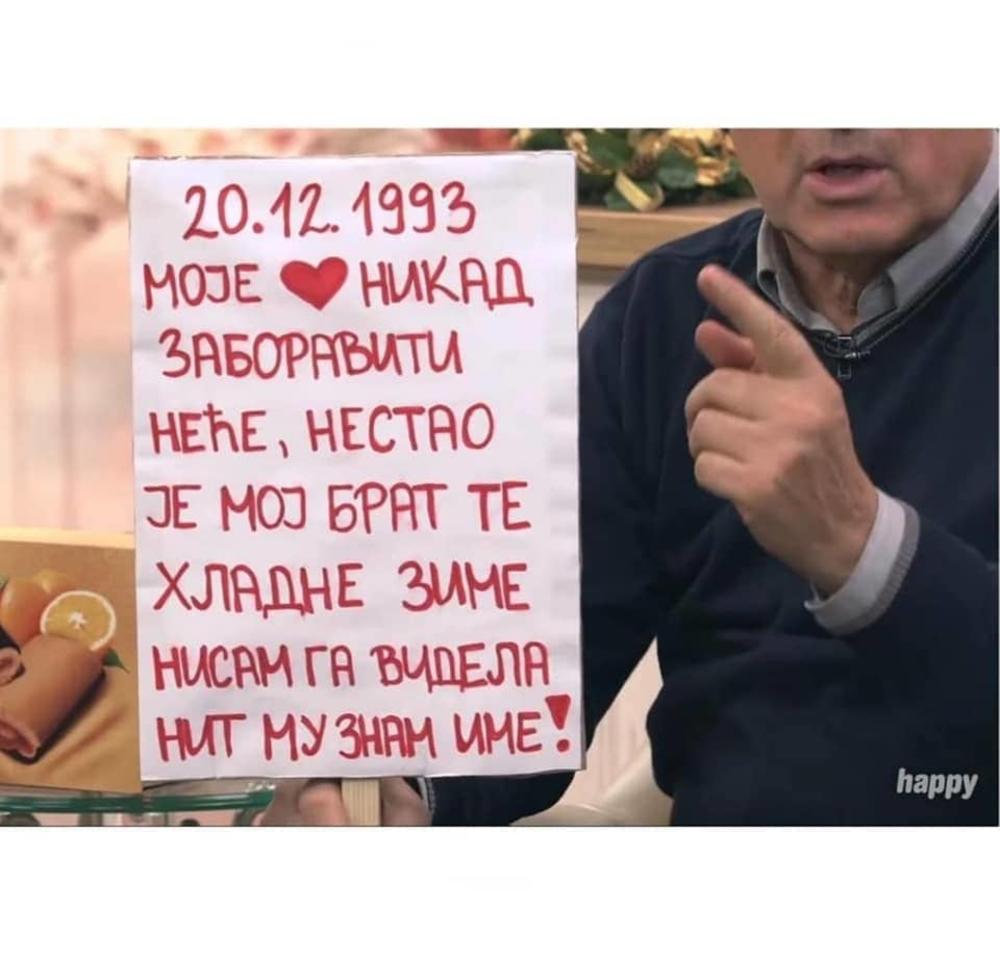 20.12.1993
МОЈЕ ❤ НИКАД
ЗАБОРАВИТИ
НЕЋЕ, НЕСТАО
ЈЕ МОЈ БРАТ ТЕ
ХЛАДНЕ ЗИМЕ
НИСАМ ГА ВИДЕЛА
НИТ МУ ЗНАМ ИМЕ!
happy